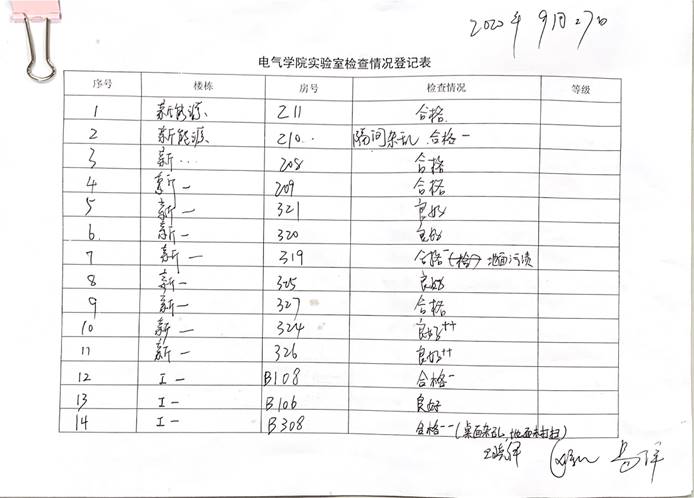 2022年9月27日
电气学院实验室检查情况登记表
序号 楼栋 房号 检查情况 等级
1 新能源 211 合格
2 新能源 210 隔间杂乱 合格-
3 新 208 合格
4 新- 209 合格
5 新- 321 良好
6 新- 320 良好
7 新- 319 合格- 地面污渍
8 新- 325 良好
9 新- 327 合格
10 新- 324 良好++
11 新- 326 良好++
12 I- B108 合格-
13 I- B106 良好
14 I- B308 合格-- (桌面杂乱,地面未打扫)